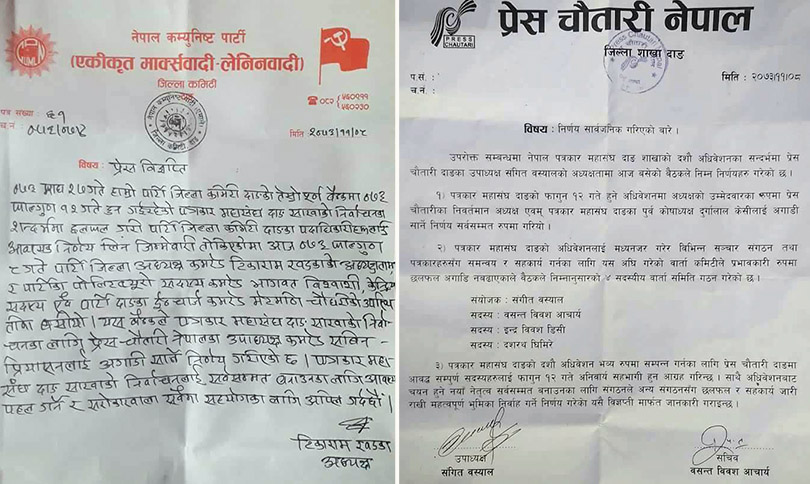 नेपाल कम्युनिष्ट पार्टी
(एकीकृत मार्क्सवादी-लेनिनवादी)
जिल्ला कमिटी
UML
पत्र संख्या : ६१
च नं ०५६/०७४
☎ ०८२ ५६०१११
५६०२३०
मिति २०७३/११/०८
विषय : प्रेस विज्ञप्ति
०७३ माघ २७ गते हाम्रो पार्टि जिल्ला कमिटि दाङको तेस्रो पूर्ण बैठकमा ०७३
फाल्गुण १२ गते हुन गईरहेको पत्रकार महासंघ दाङ शाखाको निर्वाचनका
शन्दर्भमा छलफल गरी पार्टि जिल्ला कमिटी दाङका पदाधिकारीहरूलाई
आवश्यक निर्णय लिन जिम्मेवारी तोकिएकोमा आज ०७३ फाल्गुण
८ गते पार्टि जिल्ला अध्यक्ष कमरेड टिकाराम खड्काको अध्यक्षतामा
र पार्टिका पोलिटव्यूरो सदस्य कमरेड केन्द्रिय
सदस्य एवं पार्टि दाङका ईन्चार्ज कमरेड चौधरीको
बसीयो । यस बैठकले पत्रकार महासंघ दाङ शाखाको निर्वा-
चनका लागि प्रेस-चौतारी नेपालका उपाध्यक्ष कमरेड सबिन-
प्रियासनलाई अगाडी सार्ने निर्णय गरिएको छ । पत्रकार महा-
संघ दाङ शाखाको निर्वाचनलाई सर्वसम्मत बनाउनका लागि आवश्यक
पहल गर्न र सरोकारवाला सबैमा सहयोगका लागि अपिल गर्दछौं ।
टिकाराम खड्का
अध्यक्ष
PRESS
CHAUTARI
प्रेस चौतारी नेपाल
जिल्ला शाखा दाङ
प.सं. :
च.नं. :
मिति : २०७३/११/०८
विषय : निर्णय सार्वजनिक गरिएको बारे ।
उपरोक्त सम्बन्धमा नेपाल पत्रकार महासंघ दाङ शाखाको दशौं अधिवेशनका सन्दर्भमा प्रेस
चौतारी दाङका उपाध्यक्ष संगित वस्यालको अध्यक्षतामा आज बसेको बैठकले निम्न निर्णयहरु गरेको छ ।
१) पत्रकार महासंघको फागुन १२ गते हुने अधिवेशनमा अध्यक्षको उम्मेदवारका रूपमा प्रेस
चौतारीका निवर्तमान अध्यक्ष एवम् पत्रकार महासंघ दाङका पुर्व कोषाध्यक्ष दुर्गालाल केसीलाई अगाडी
सार्ने निर्णय सर्वसम्मत रुपमा गरियो ।
२) पत्रकार महासंघ दाङको अधिवेशनलाई मध्यनजर गरेर विभिन्न सञ्चार संगठन तथा
पत्रकारहरुसंग समन्वय र सहकार्य गर्नका लागि यस अघि गरेको वार्ता कमिटीले प्रभावकारी रुपमा
छलफल अगाडि नबढाएकाले बैठकले निम्नानुसारको ४ सदस्यीय वार्ता समिति गठन गरेको छ ।
संयोजक : संगीत वस्याल
सदस्य : वसन्त विवश आचार्य
सदस्य : इन्द्र विवश डिसी
सदस्य : दशरथ घिमिरे
३) पत्रकार महासंघ दाङको दशौं अधिवेशन भव्य रुपमा सम्पन्न गर्नका लागि प्रेस चौतारी दाङमा
आवद्ध सम्पुर्ण सदस्यहरुलाई फागुन १२ गते अनिवार्य सहभागी हुन आग्रह गरिन्छ । साथै अधिवेशनबाट
चयन हुने नयाँ नेतृत्व सर्वसम्मत बनाउनका लागि संगठनले अन्य संगठनसंग छलफल र सहकार्य जारी
राखी महत्वपूर्ण भुमिका निर्वाह गर्ने निर्णय गरेको यसै विज्ञप्ती मार्फत जानकारी गराइन्छ ।
उपाध्यक्ष
संगित वस्याल
सचिव
वसन्त विवश आचार्य